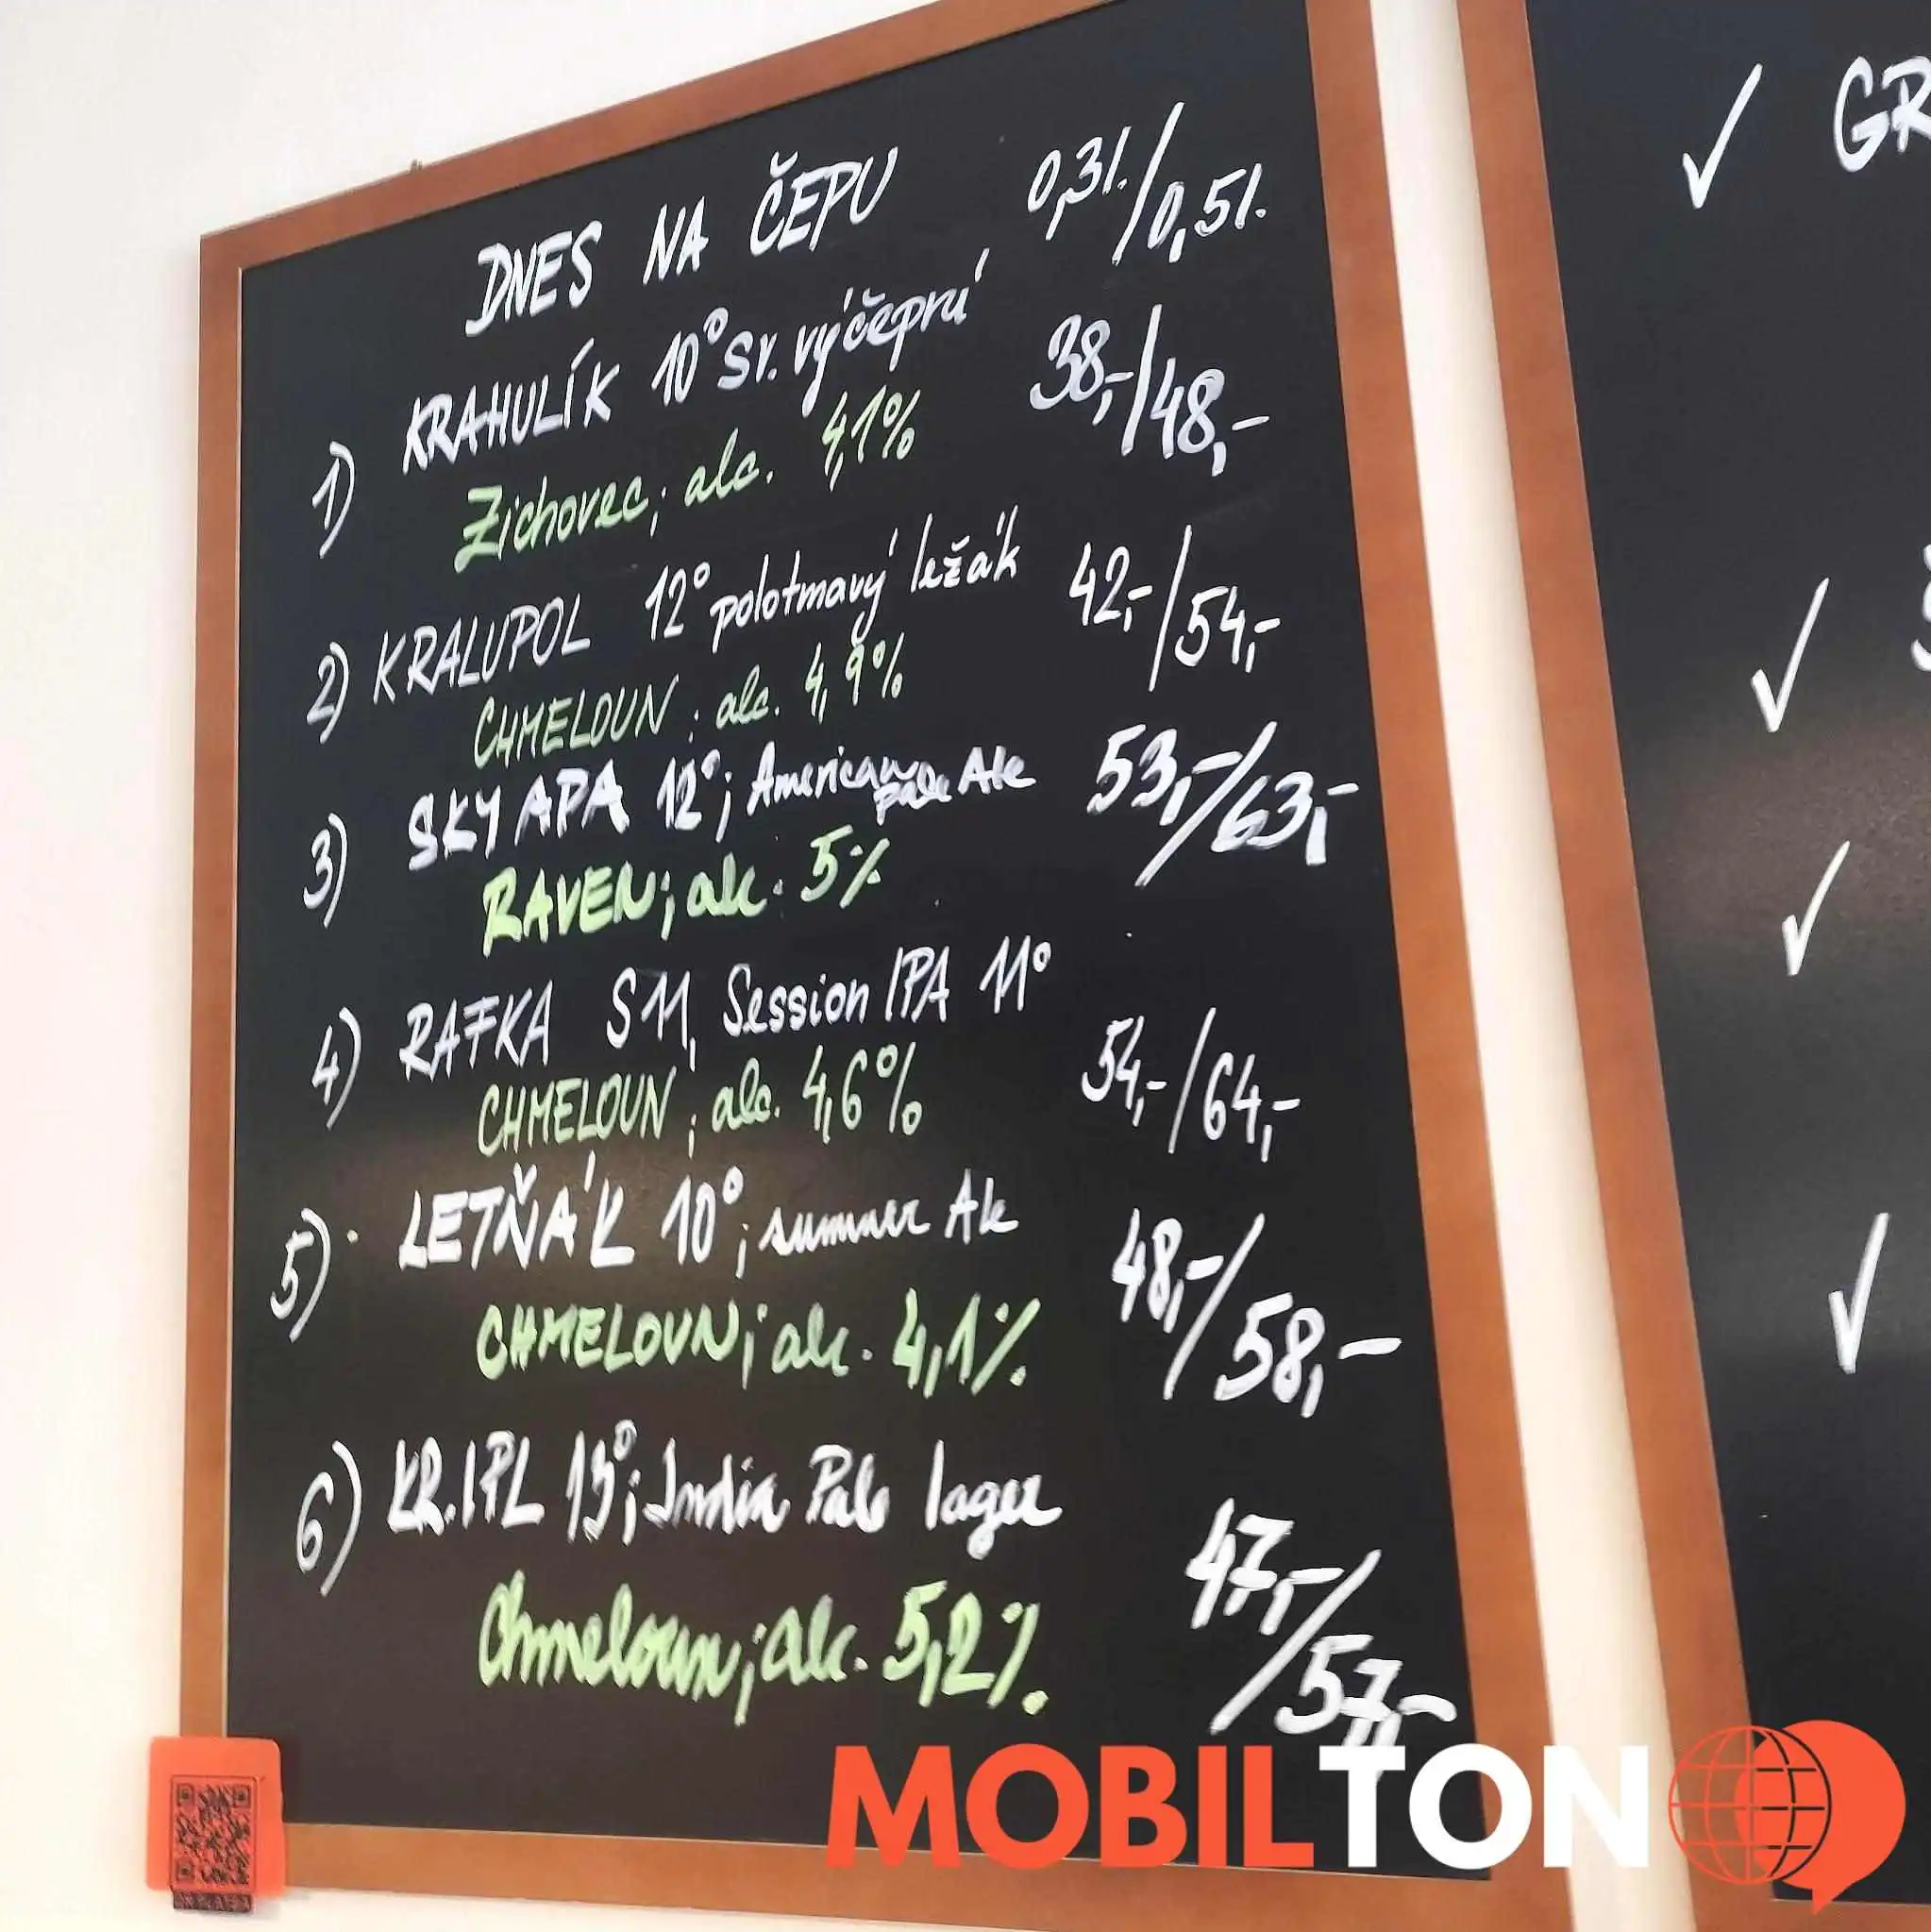 DNES NA ČEPU 0,3l./0,5l.
1) KRAHULÍK 10° sv. výčepní 38,-/48,-
Zichovec; alc. 4,1%
2) KRALUPOL 12° polotmavý ležák 42,-/54,-
CHMELOUN; alc. 4,9%
3) SKY APA 12°; American pale Ale 53,-/63,-
RAVEN; alc. 5%
4) RAFKA S11, Session IPA 11° 54,-/64,-
CHMELOUN; alc. 4,6%
5) LETŇÁK 10°; summer Ale 48,-/58,-
CHMELOUN; alc. 4,1%
6) KR.IPL 13°; India Pale lager 47,-/57,-
Chmeloun; alc. 5,2%.
✓ GR
✓
✓
✓
MOBILTON